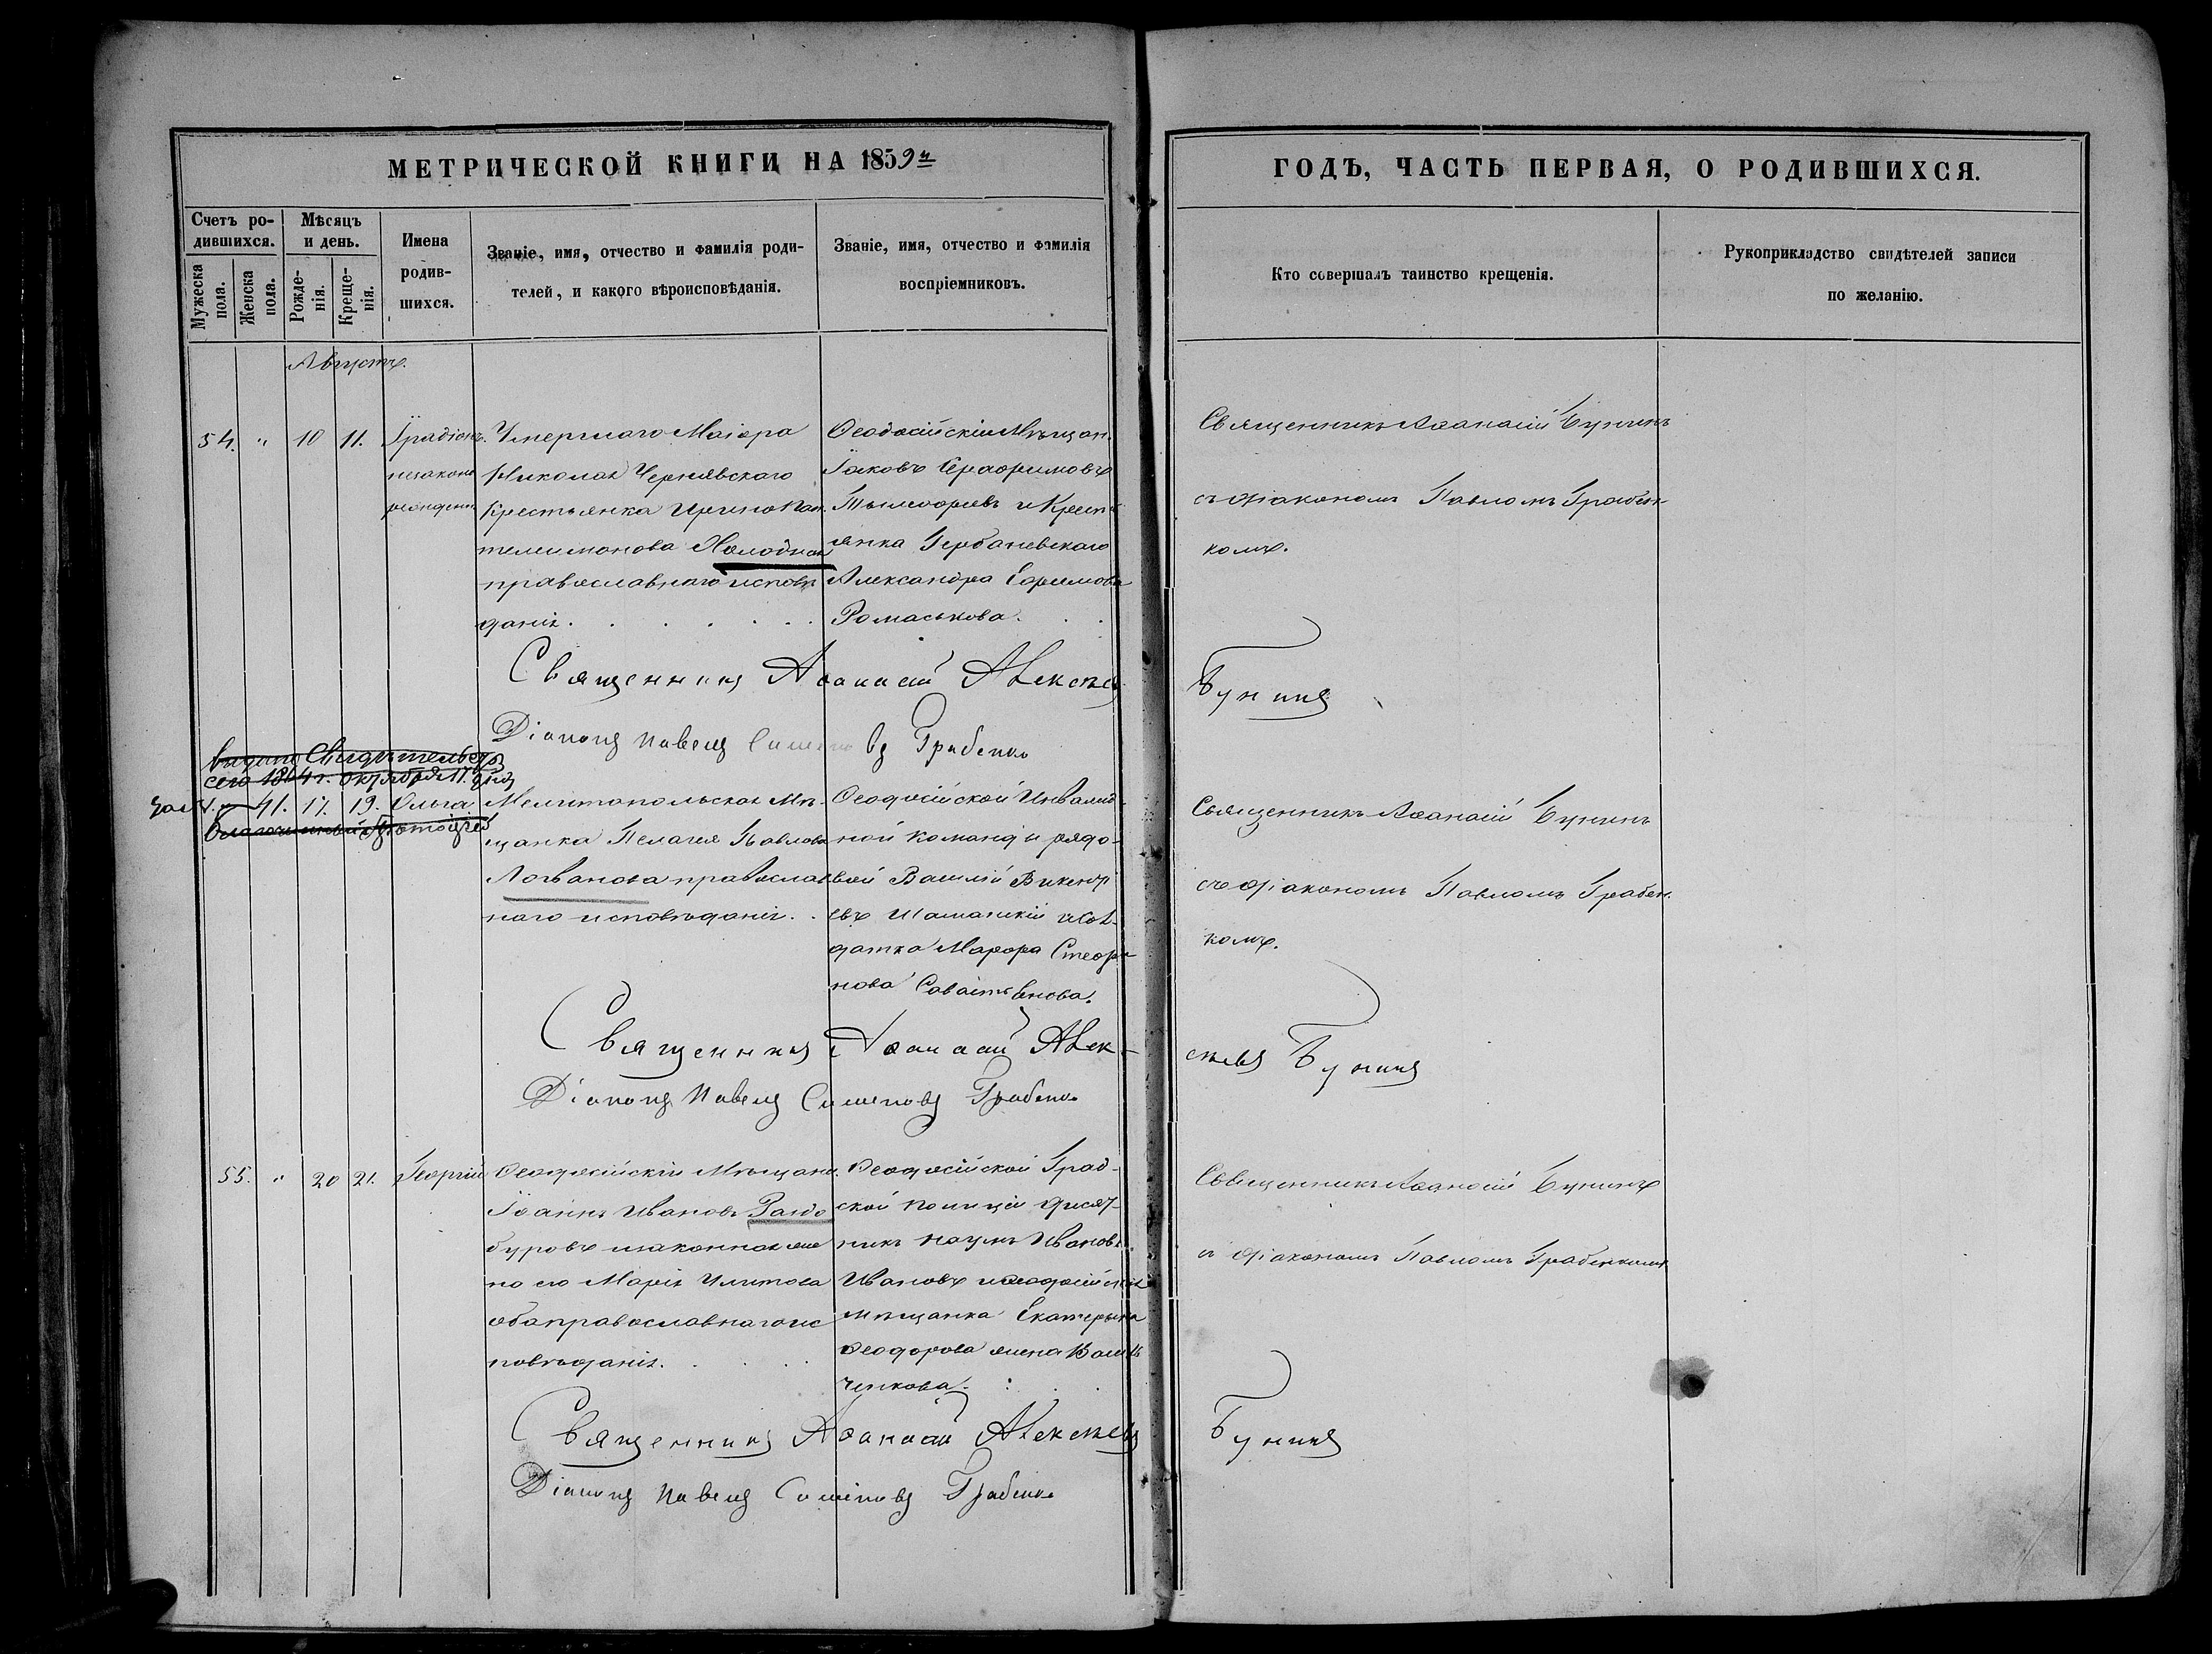 МЕТРИЧЕСКОЙ КНИГИ НА 1859й
ГОДЪ, ЧАСТЬ ПЕРВАЯ, О РОДИВШИХСЯ.
Счетъ ро-
дившихся.
Мужеска
пола.
Женска
пола.
Мѣсяцъ
и день.
Рожде-
нія.
Креще-
нія.
Имена
родив-
шихся.
Званіе, имя, отчество и фамилія роди-
телей, и какого вѣроисповѣданія.
Званіе, имя, отчество и фамилія
воспріемниковъ.
Кто совершалъ таинство крещенія.
Рукоприкладство свидѣтелей записи
по желанію.
Августъ.
54. " 10 11.
Ірадіонъ.
незаконо
рожденъ
Умершаго Маіора
Николая Чернявскаго
Крестьянка Ирина Пан-
телеимонова Холодная
православнаго исповѣ
данія.
Ѳеодосійскій Мѣщан.
Іаковъ Серафимовъ
и Крест
янка Гербаневскаго
Александра Ефимова
Ромаськова.
Священникъ Аѳанасій Бунинъ
съ діакономъ Павломъ Грабен-
комъ.
Священникъ Аѳанасій Алексѣевъ Бунинъ
Діаконъ Павелъ Симеоновъ Грабенко
выдано свидѣтельство
сего 1864 г. октября 17. дня
" 41. 17. 19. Ольга
Благочинный Протоіерей
Мелитопольская Мѣ-
щанка Пелагея Павлова
Логванова православ
наго исповѣданія.
Ѳеодосійской Инвалид-
ной команды рядо-
вой Василій Викенті
евъ Шаманскій и Сол-
датка Марфа Стефа-
нова Савастьянова.
Священникъ Аѳанасій Бунинъ
съ діакономъ Павломъ Грабен.
комъ.
Священникъ Аѳанасій Алек-
сѣевъ Бунинъ
Діаконъ Павелъ Симеоновъ Грабенко
55. " 20 21. Георгій
Ѳеодосійскій Мѣщани.
Іоаннъ Ивановъ Раздо
буровъ и законная же
на его Марія Улитова
оба православнаго ис
повѣданія.
Ѳеодосійской Град-
ской полиціи десят-
никъ Наумъ Ивановъ
Ивановъ и Ѳеодосійская
мѣщанка Екатерина
Ѳеодорова жена
ченкова.
Священникъ Аѳанасій Бунинъ
съ діакономъ Павломъ Грабенкомъ
Священникъ Аѳанасій Алексѣевъ Бунинъ
Діаконъ Павелъ Симеоновъ Грабенко